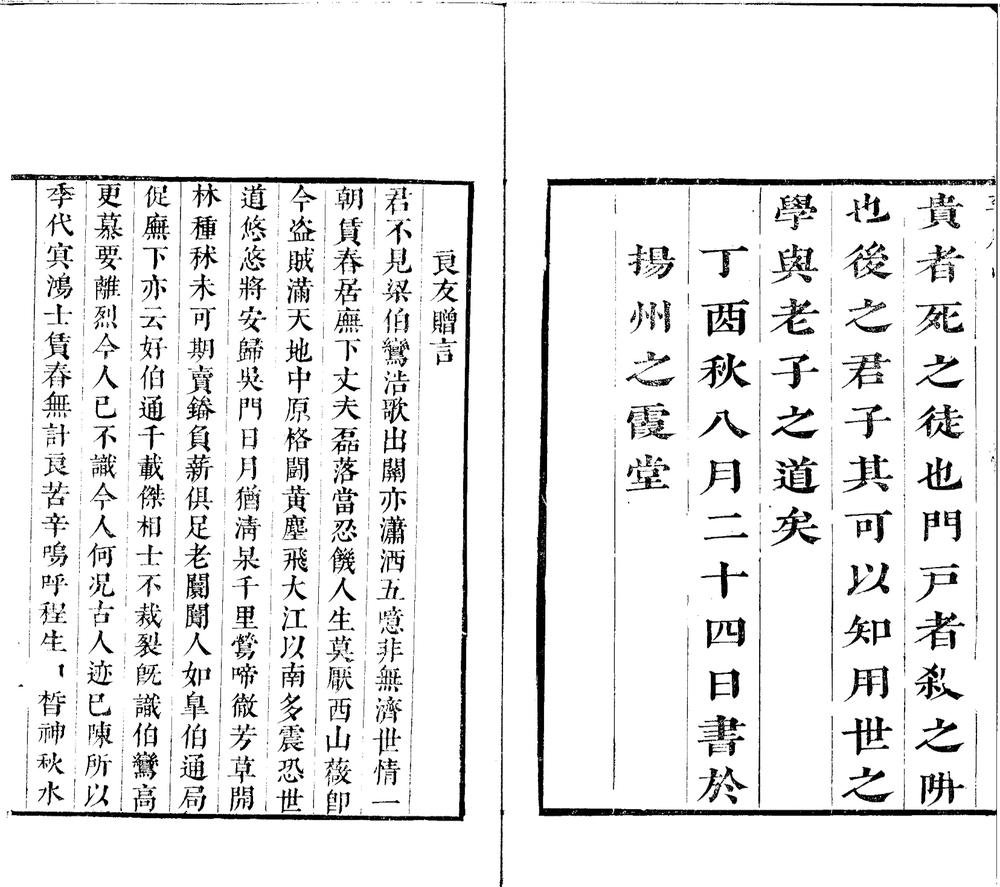 貴者死之徒也門戸者殺之阱
也後之君子其可以知用世之
學與老子之道矣
丁酉秋八月二十四日書於
揚州之霞堂
良友贈言
君不見梁伯鸞浩歌出關亦瀟洒五噫非無濟世情一
朝賃舂居廡下丈夫磊落當忍饑人生莫厭西山薇卽
今盜賊滿天地中原格鬪黃塵飛大江以南多震恐世
道悠悠將安歸吳門日月猶淸杲千里鶯啼微芳草開
林種秫未可期賣鎓負薪俱足老闤闠人如皐伯通局
促廡下亦云好伯通千載傑相士不裁裂旣識伯鸞高
更慕要離烈今人已不識今人何况古人迹已陳所以
季代㝠鴻士賃舂無計良苦辛嗚呼程生皙神秋水